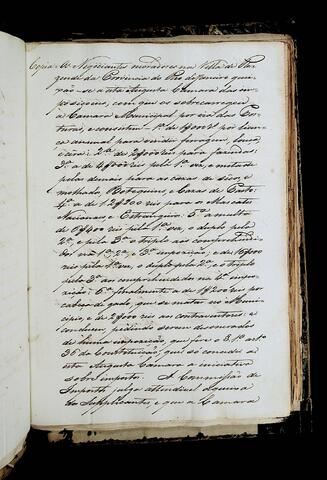 Copia. Os Negociantes moradores na Villa de Re-
zende da Provincia do Rio de Janeiro quei-
xão-se a esta Augusta Camara das im-
posiçoens, com que os sobrecarregou
a Camara Municipal por via das Pos-
turas, e consistem 1ª de
annual para vender ferragem, louça
2ª de rs para
3ª a de rs pela 1ª vez, e metade
pelas demais para as cazas de seco, e
molhado, Botequins, e Cazas de Pasto
4ª a de 12$800 rs para os Mascates
Nacionaes e Estrangeiros. 5ª a multa
de 6$400 rs pela 1ª vez, o duplo pela
2ª, e pela 3ª o triplo aos comprehendi-
dos na 1ª, 2ª, e 3ª imposição, e de
rs pela 1ª vez, o duplo pela 2ª, e triplo
pela 3ª aos comprehendidos na 4ª impo-
sição; 6ª finalmente a de rs por
cabeça de gado, que se matar no Muni-
cipio, e de rs aos contraventores: e
concluem, pedindo serem desonerados
de huma imposição, que fere o § 1º artº
36 da Constituição, que só concede a
esta Augusta Camara a iniciativa
sobre impostos. A Commissão de
julga attendivel a queixa
dos Supplicantes, e que a Camara